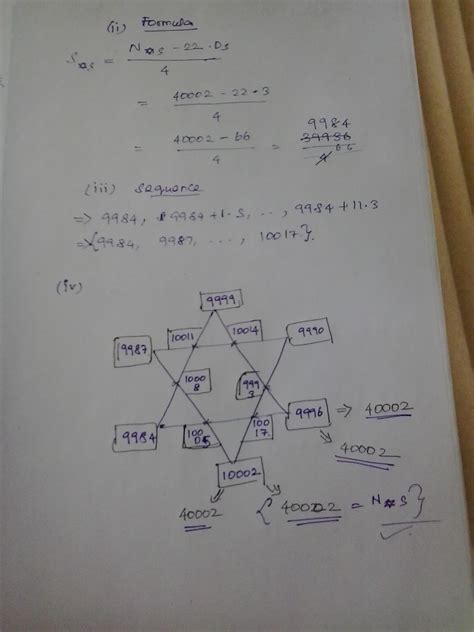 (ii) Formula
S✡s = N✡s - 22 . Ds / 4
= 40002 - 22 · 3 / 4
= 40002 - 66 / 4 = 9984
(iii) Sequence
=> 9984, 9984+1.3, .., 9984+11.3
=> {9984, 9987, ..., 10017}.
(iv)
9999
9987 10011 10014 9990
10008 9993
9984 10005 10017 9996 => 40002
10002 40002
40002 {40002 = N✡s}